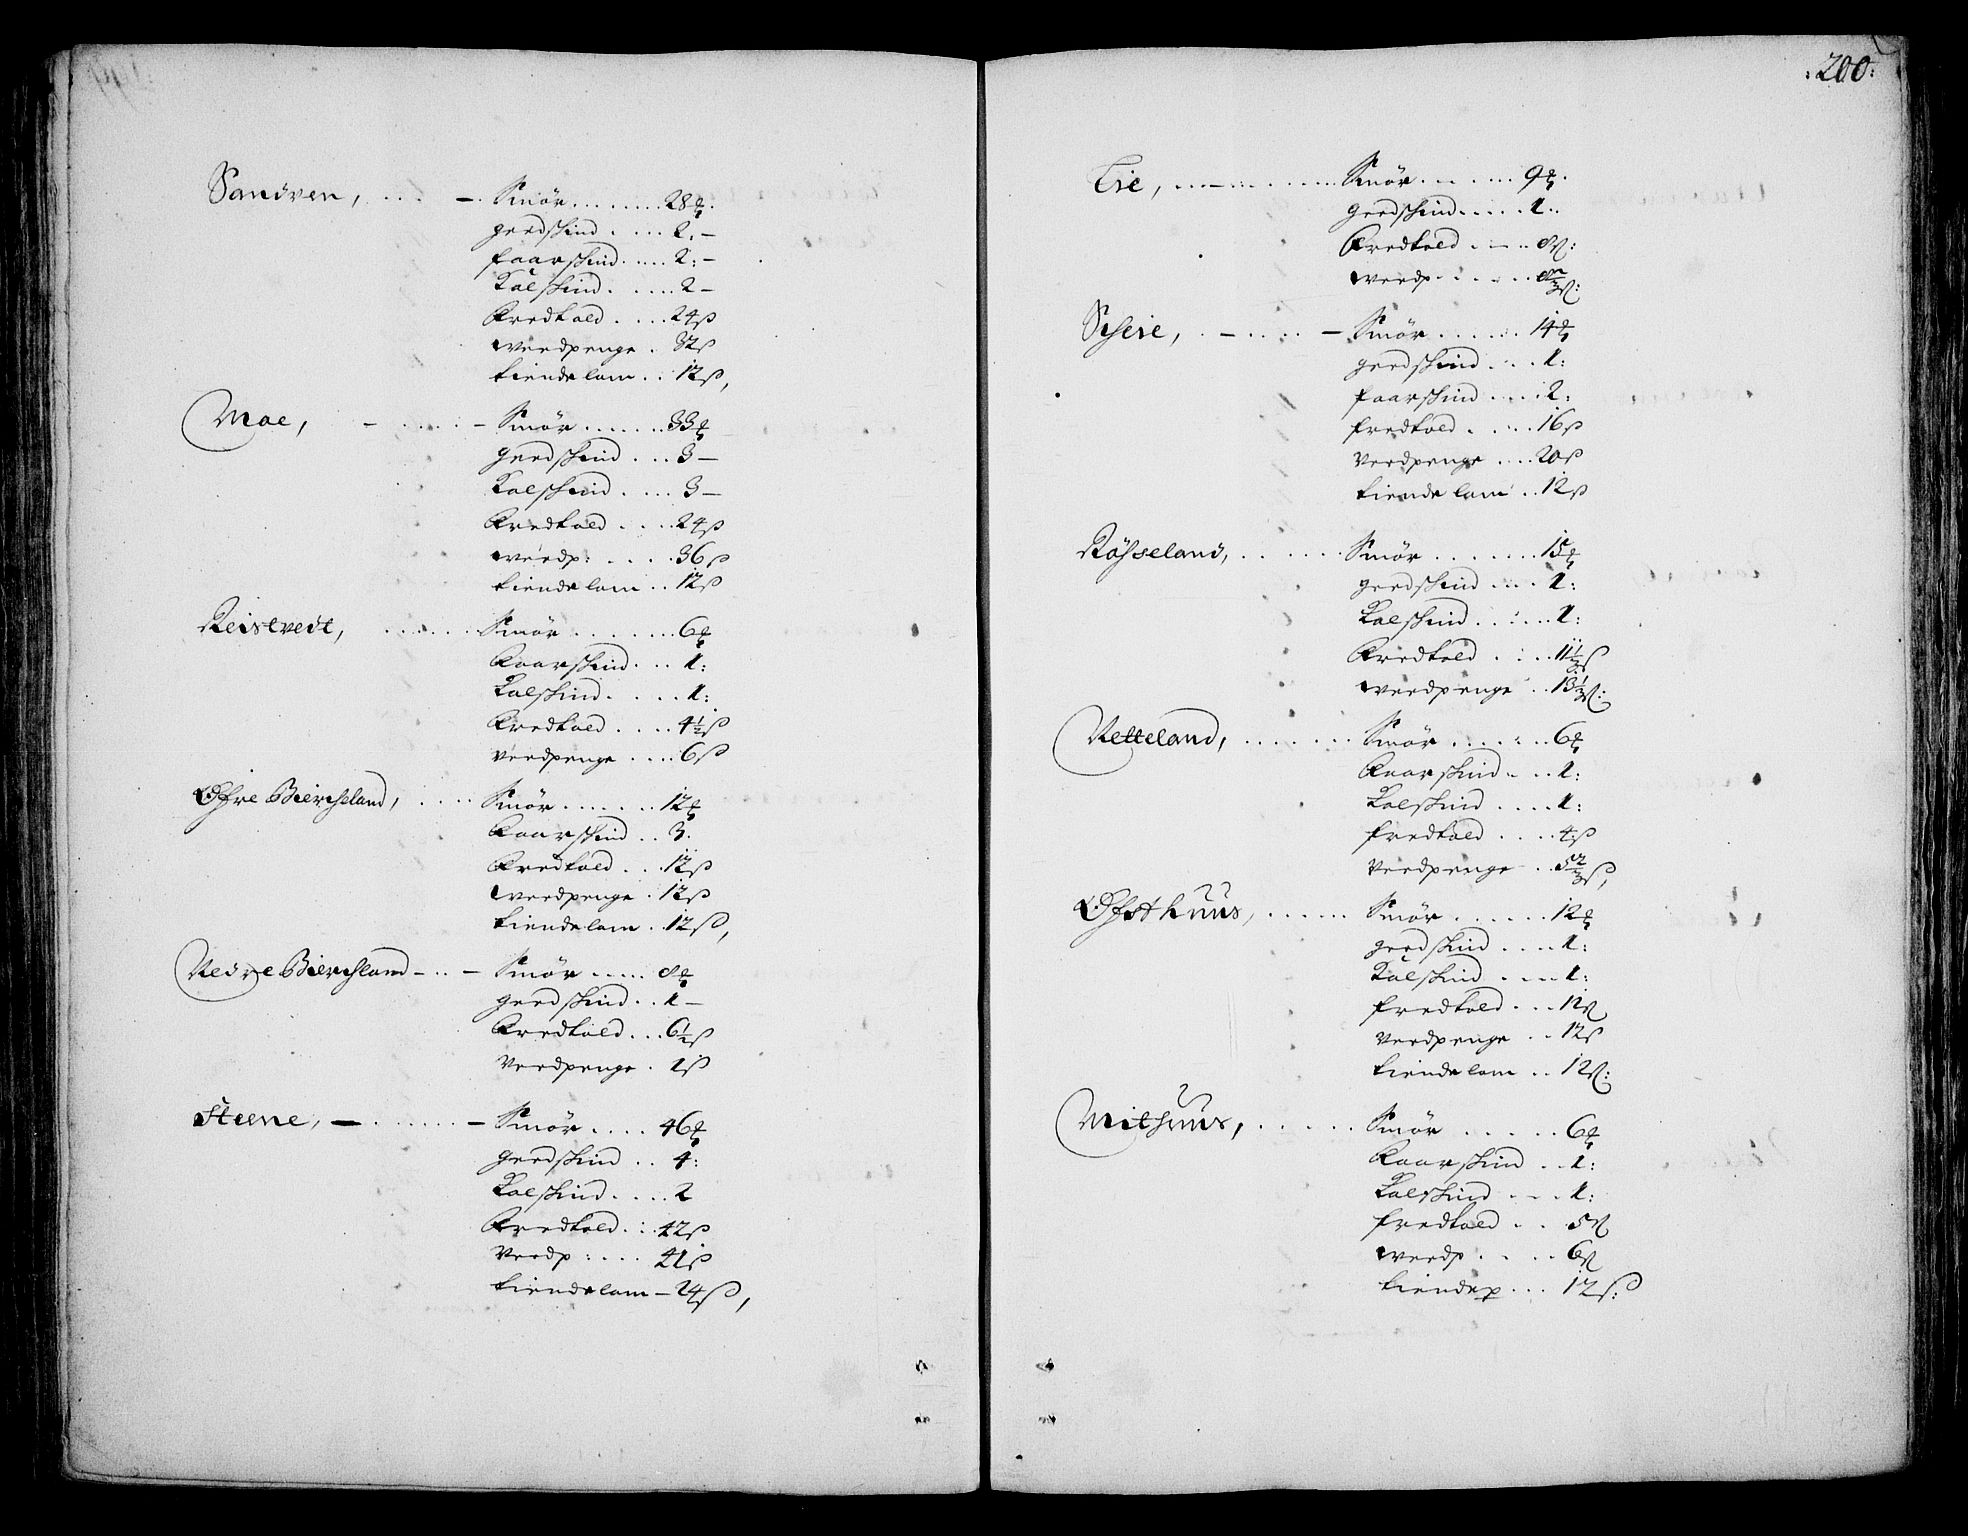 Sandven, .... — Smör ....... 28 ℔.
geedskind . .... 2. —
faarskind ..... 2: —
Kalfskind . .... 2 —
fredtold . .... 24 ß
weedpenge . 32 ß
tiende lam .. 12 ß,
Moe, — .... — Smör ...... 33 ℔
geedskind .... 3 —
Kalfskind .... 3 —
fredtold .... 24 ß
weedp: .... 36 ß
tiende lam .. 12 ß
Reistvedt, ...... Smör ....... 6 ℔
faarskind .... 1:
Kalfskind ..... 1:
fredtold .... 4½ ß
veedpenge .... 6 ß
Øfre Biercheland, .... Smör ...... 12 ℔
faarskind .. 3.
fredtold ... 12 ß
weedpenge . 12 ß
tiende lam . 12 ß,
Nedre Biercheland — .. — Smör ..... 8 ℔
geedskind .. 1 —
fredtold ... 6½ ß
veedpenge . 1 ß
Steene, — ...... — Smör .... 46 ℔
geedskind .. 4:
Kalfskind .... 2
fredtold .:. 42 ß
veedp: .... 41 ß
tiende lam — 24 ß,
:200:
Eie, ........ Smör ....... 9 ℔.
geedskind ..... 1:.
fredtold .... 8 ß:
weedp ..... 8⅔ ß:
Scheie, . — .... — Smör ...... 14 ℔
geedskind .... 1:
faarskind ..... 2:
fredtold ..... 16 ß
veedpenge .... 20 ß
tiende lam .. 12 ß
Rösseland, ...... Smör ....... 15 ℔
geedskind .... 1:
Kalfskind ...... 1:
fredtold .... 11½ ß
weedpenge .. 13½ ß:
Netteland, ....... Smör ...... 6 ℔
faarskind .... 1:
Kalfskind ..... 1:
fredtold .... 4 ß
veedpenge .. 5⅔ ß,
Øfsthuus, ...... Smör ...... 12 ℔
geedskind .... 1:
Kalfskind .... 1:
fredtold ... 12 ß
veedpenge .. 12 ß
tiende lam .. 12 ß:
Mithuus, ...... Smör ...... 6 ℔
faarskind .. 1:
Kalfskind ... 1:
fredtold .. 5 ß
weedp ..... 6 ß
tiendep ... 12 ß: